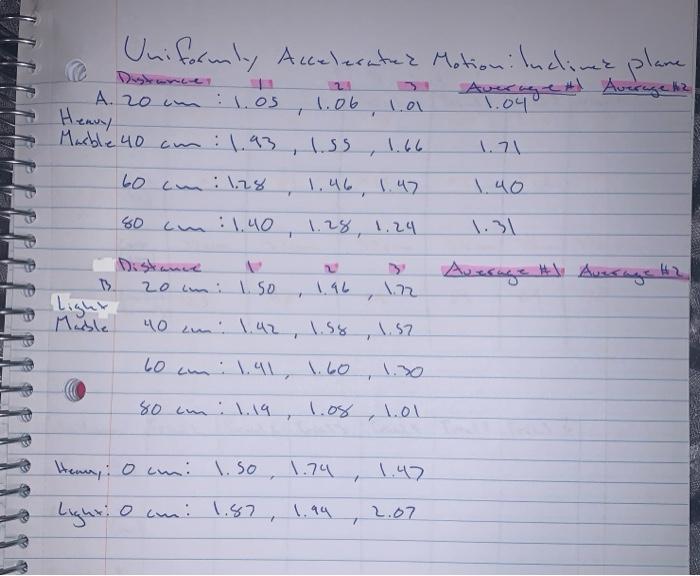 Uniformly Accelerated Motion: Inclined plane
Distance: 1 2 3 Average #1 Average #2
A. 20 cm : 1.05 , 1.06 , 1.01 1.04
Heavy
Marble 40 cm : 1.93 , 1.55 , 1.66 1.71
60 cm : 1.28 , 1.46 , 1.47 1.40
80 cm : 1.40 , 1.28 , 1.24 1.31
Distance 1 2 3 Average #1 Average #2
B. 20 cm : 1.50 , 1.96 , 1.72
Light
Marble 40 cm : 1.42 , 1.58 , 1.57
60 cm : 1.41 , 1.60 , 1.30
80 cm : 1.19 , 1.08 , 1.01
Heavy: 0 cm : 1.50 , 1.74 , 1.47
Light: 0 cm : 1.87 , 1.94 , 2.07